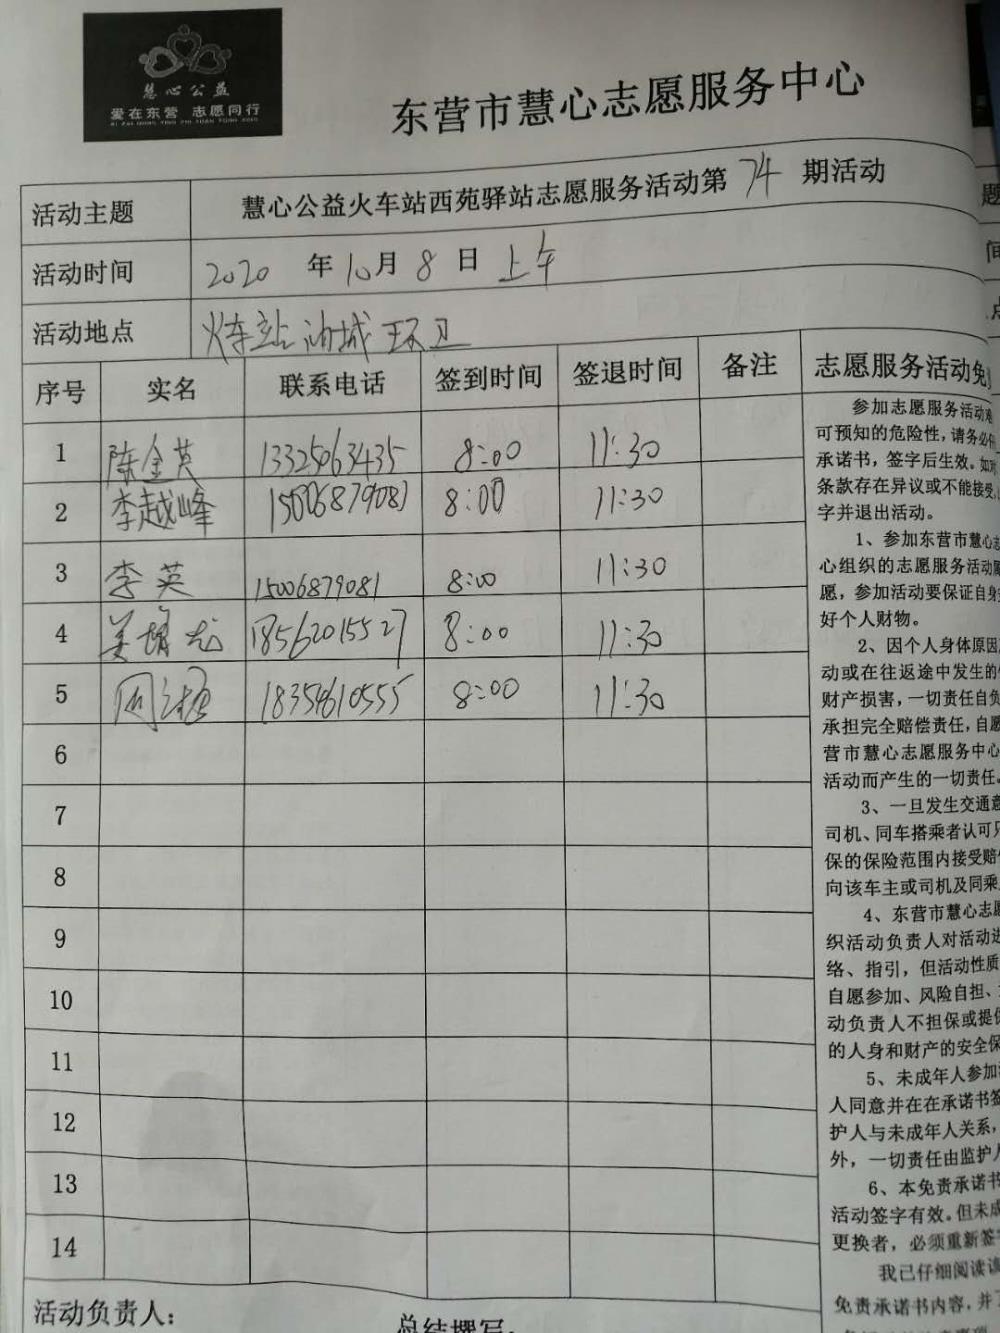 慧心公益
爱在东营 志愿同行
AI ZAI DONG YING ZHI YUAN TONG XING
东营市慧心志愿服务中心
活动主题 慧心公益火车站西苑驿站志愿服务活动第74期活动
活动时间 2020 年 10 月 8 日 上午
活动地点 火车站油城环卫
序号 实名 联系电话 签到时间 签退时间 备注
1 陈金英 13325063435 8:00 11:30
2 李越峰 15006879081 8:00 11:30
3 李英 15006879081 8:00 11:30
4 姜 龙 18562015527 8:00 11:30
5 周 18354610555 8:00 11:30
6
7
8
9
10
11
12
13
14
活动负责人：
总结撰写：
志愿服务活动免
参加志愿服务活动难
可预知的危险性，请务必仔
承诺书，签字后生效。如对
条款存在异议或不能接受，
字并退出活动。
1、参加东营市慧心志
心组织的志愿服务活动愿
愿，参加活动要保证自身
好个人财物。
2、因个人身体原因
动或在往返途中发生的
财产损害，一切责任自负
承担完全赔偿责任，自愿
营市慧心志愿服务中心
活动而产生的一切责任。
3、一旦发生交通意
司机、同车搭乘者认可只
保的保险范围内接受赔
向该车主或司机及同乘
4、东营市慧心志愿
织活动负责人对活动进
络、指引，但活动性质
自愿参加、风险自担、
动负责人不担保或提供
的人身和财产的安全保
5、未成年人参加
人同意并在在承诺书签
护人与未成年人关系，
外，一切责任由监护人
6、本免责承诺书
活动签字有效。但未成
更换者，必须重新签
我已仔细阅读该
免责承诺书内容，并
题
间
点